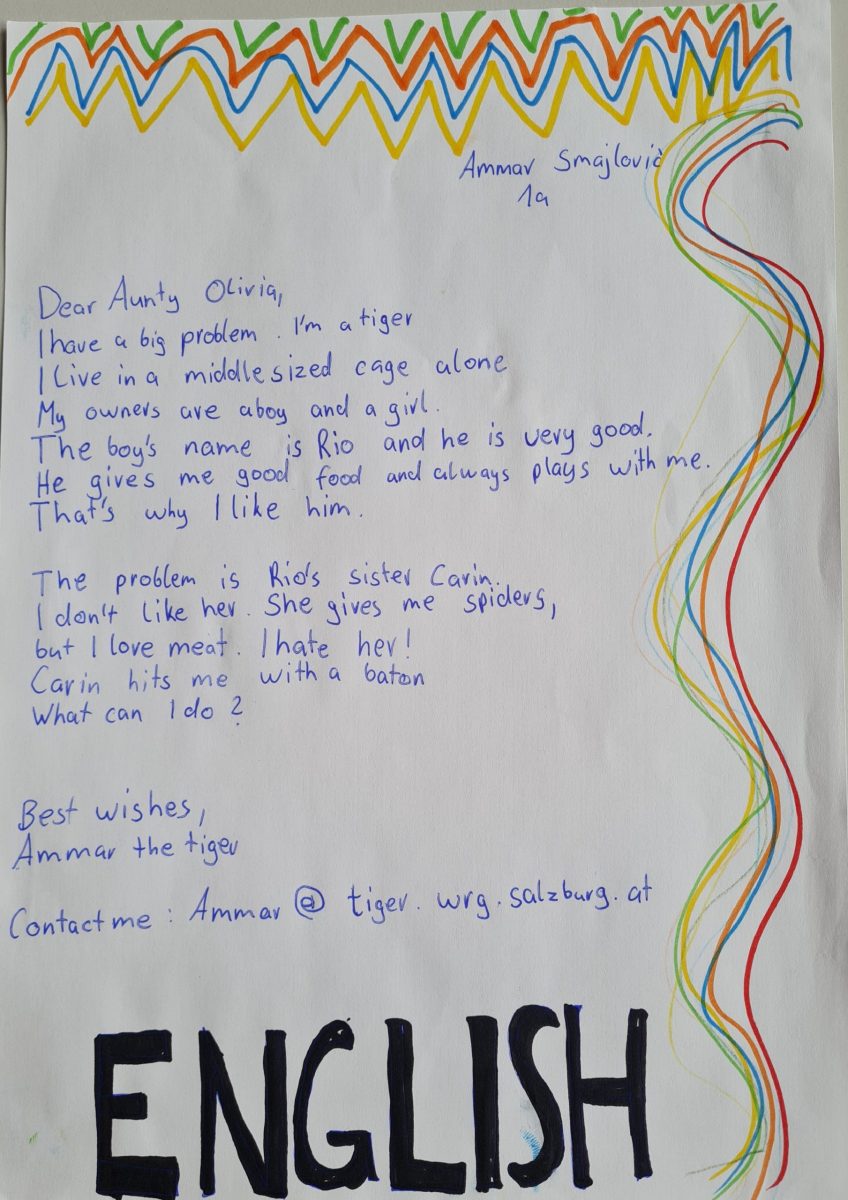 Ammar Smajlović
1a
Dear Aunty Olivia,
I have a big problem. I'm a tiger
I Live in a middlesized cage alone
My owners are a boy and a girl.
The boy's name is Rio and he is very good.
He gives me good food and always plays with me.
That's why I like him.
The problem is Rio's sister Carin.
I don't like her. She gives me spiders,
but I love meat. I hate her!
Carin hits me with a baton
What can I do?
Best wishes,
Ammar the tiger
Contact me: Ammar@tiger.wrg.salzburg.at
ENGLISH